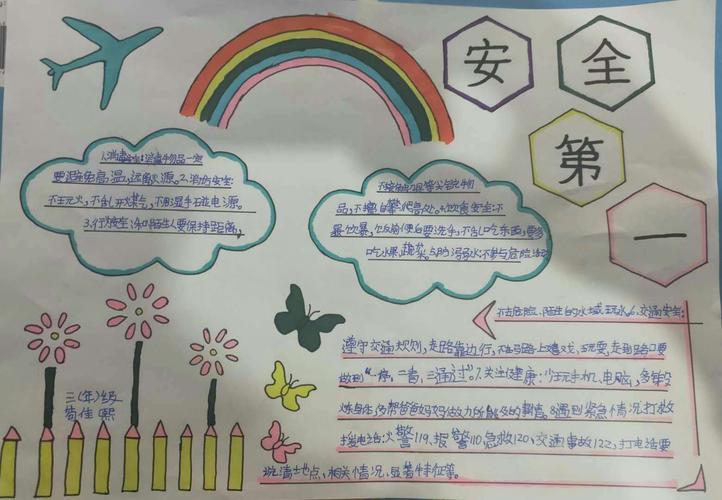 安全
第
一
1.消毒安全:消毒物品一定
要避免高温,远离火源。2.消防安全:
不玩火,不乱开燃气,不用湿手碰电源。
3.行为安全:和陌生人要保持距离,
不接触剪刀等尖锐物
品,不攀爬高处。4.饮食安全:不
暴饮暴,饭前便后要洗手,不乱吃东西,要多
吃水果、蔬菜。5.防溺水:不参与危险
不去危险、陌生的水域玩水。6.交通安全:
遵守交通规则,走路靠边行,不在马路上嬉戏、玩耍,走到路口要
做到"一停,二看,三通过"。7.关注健康:少玩手机、电脑,多锻
炼身体,多帮爸爸妈妈做力所能及的事情。8.遇到紧急情况打救
援电话:火警119、报警110、急救120、交通事故122,打电话要
说清楚地点、相关情况、显著特征等。
三(年)级
荀佳熙